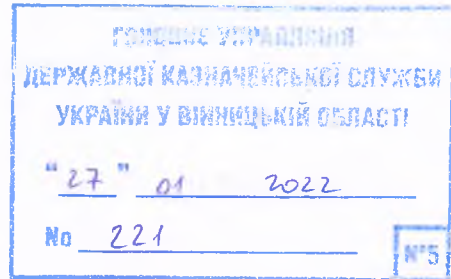 ГОЛОВНЕ УПРАВЛІННЯ
ДЕРЖАВНОЇ КАЗНАЧЕЙСЬКОЇ СЛУЖБИ
УКРАЇНИ У ВІННИЦЬКІЙ ОБЛАСТІ
"27" 01 2022
No 221
№5